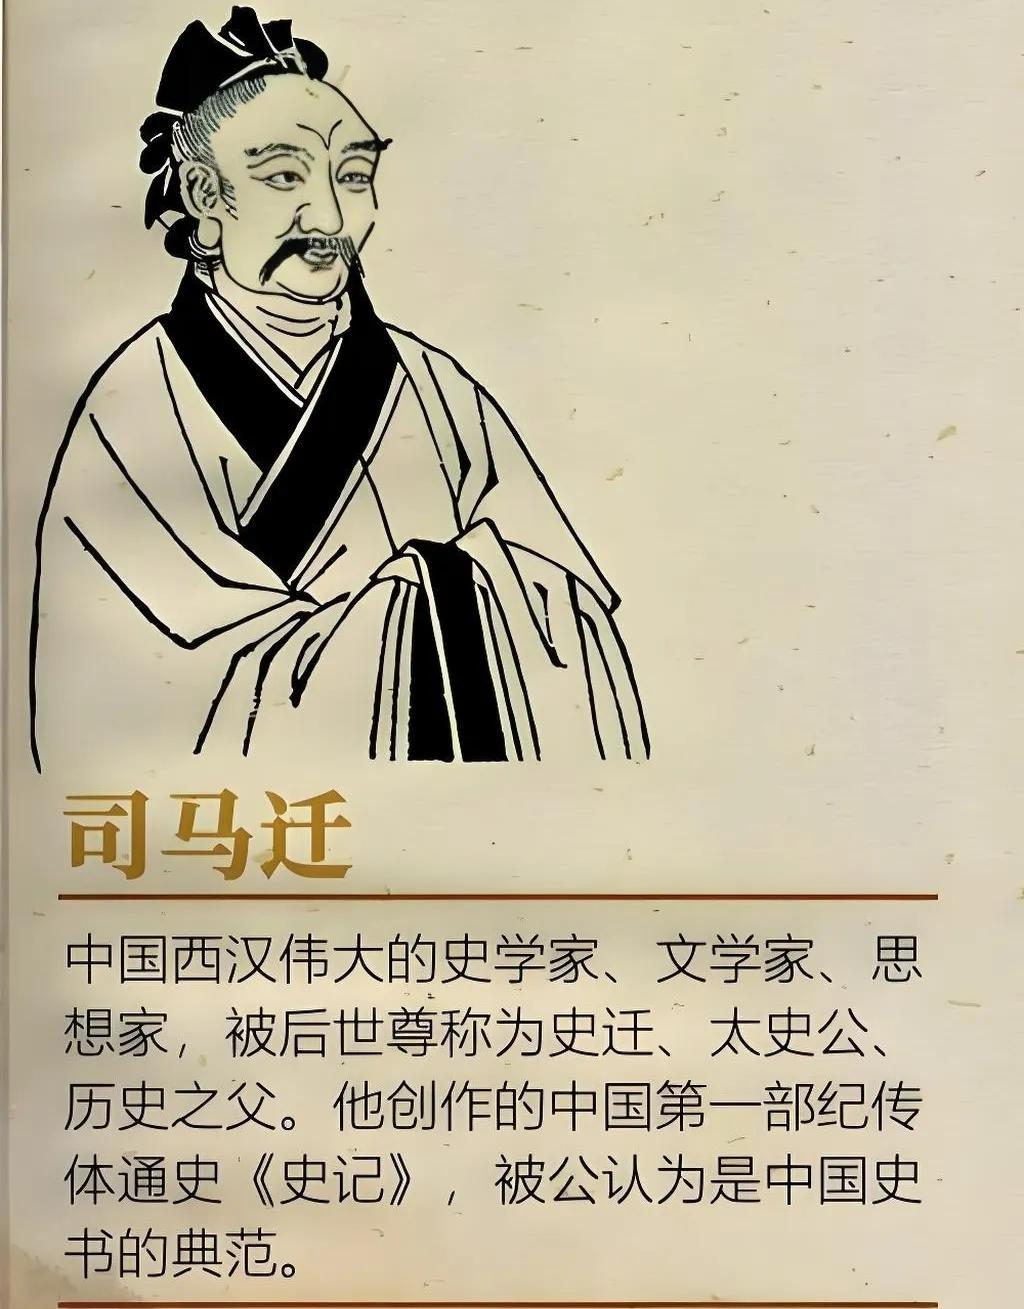 司马迁
中国西汉伟大的史学家、文学家、思
想家，被后世尊称为史迁、太史公、
历史之父。他创作的中国第一部纪传
体通史《史记》，被公认为是中国史
书的典范。